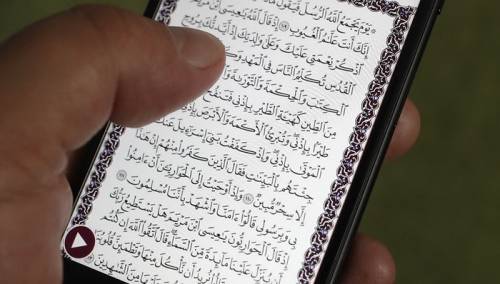 ۞ يَوْمَ يَجْمَعُ ٱللَّهُ ٱلرُّسُلَ فَيَقُولُ
إِنَّكَ أَنتَ عَلَّٰمُ ٱلْغُيُوبِ ١٠٩ إِذْ قَالَ ٱللَّهُ يَٰعِيسَى ٱبْنَ
ٱذْكُرْ نِعْمَتِى عَلَيْكَ وَعَلَىٰ وَٰلِدَتِكَ إِذْ أَيَّدتُّكَ بِرُوحِ
ٱلْقُدُسِ تُكَلِّمُ ٱلنَّاسَ فِى ٱلْمَهْدِ
ٱلْكِتَٰبَ وَٱلْحِكْمَةَ وَٱلتَّوْرَىٰةَ
مِنَ ٱلطِّينِ كَهَيْـَٔةِ ٱلطَّيْرِ بِإِذْنِى فَتَنفُخُ
طَيْرًۢا بِإِذْنِى وَتُبْرِئُ ٱلْأَكْمَهَ وَٱلْأَبْرَصَ بِإِذْنِى
ٱلْمَوْتَىٰ بِإِذْنِى وَإِذْ كَفَفْتُ بَنِىٓ إِسْرَٰٓءِيلَ عَنكَ
جِئْتَهُم بِٱلْبَيِّنَٰتِ فَقَالَ ٱلَّذِينَ كَفَرُوا۟ مِنْهُمْ إِنْ هَٰذَآ
إِلَّا سِحْرٌ مُّبِينٌ ١١٠ وَإِذْ أَوْحَيْتُ إِلَى ٱلْحَوَارِيِّـۧنَ أَنْ ءَامِنُوا۟
بِى وَبِرَسُولِى قَالُوٓا۟ ءَامَنَّا وَٱشْهَدْ بِأَنَّنَا مُسْلِمُونَ ١١١
إِذْ قَالَ ٱلْحَوَارِيُّونَ يَٰعِيسَى ٱبْنَ مَرْيَمَ هَلْ يَسْتَطِيعُ رَبُّكَ
أَن يُنَزِّلَ عَلَيْنَا مَآئِدَةً مِّنَ ٱلسَّمَآءِ قَالَ ٱتَّقُوا۟ ٱللَّهَ إِن كُنتُم
قَالُوا۟ نُرِيدُ أَن نَّأْكُلَ مِنْهَا وَتَطْمَئِنَّ قُلُوبُنَا
عَلَيْهَا مِنَ ٱلشَّٰهِدِينَ